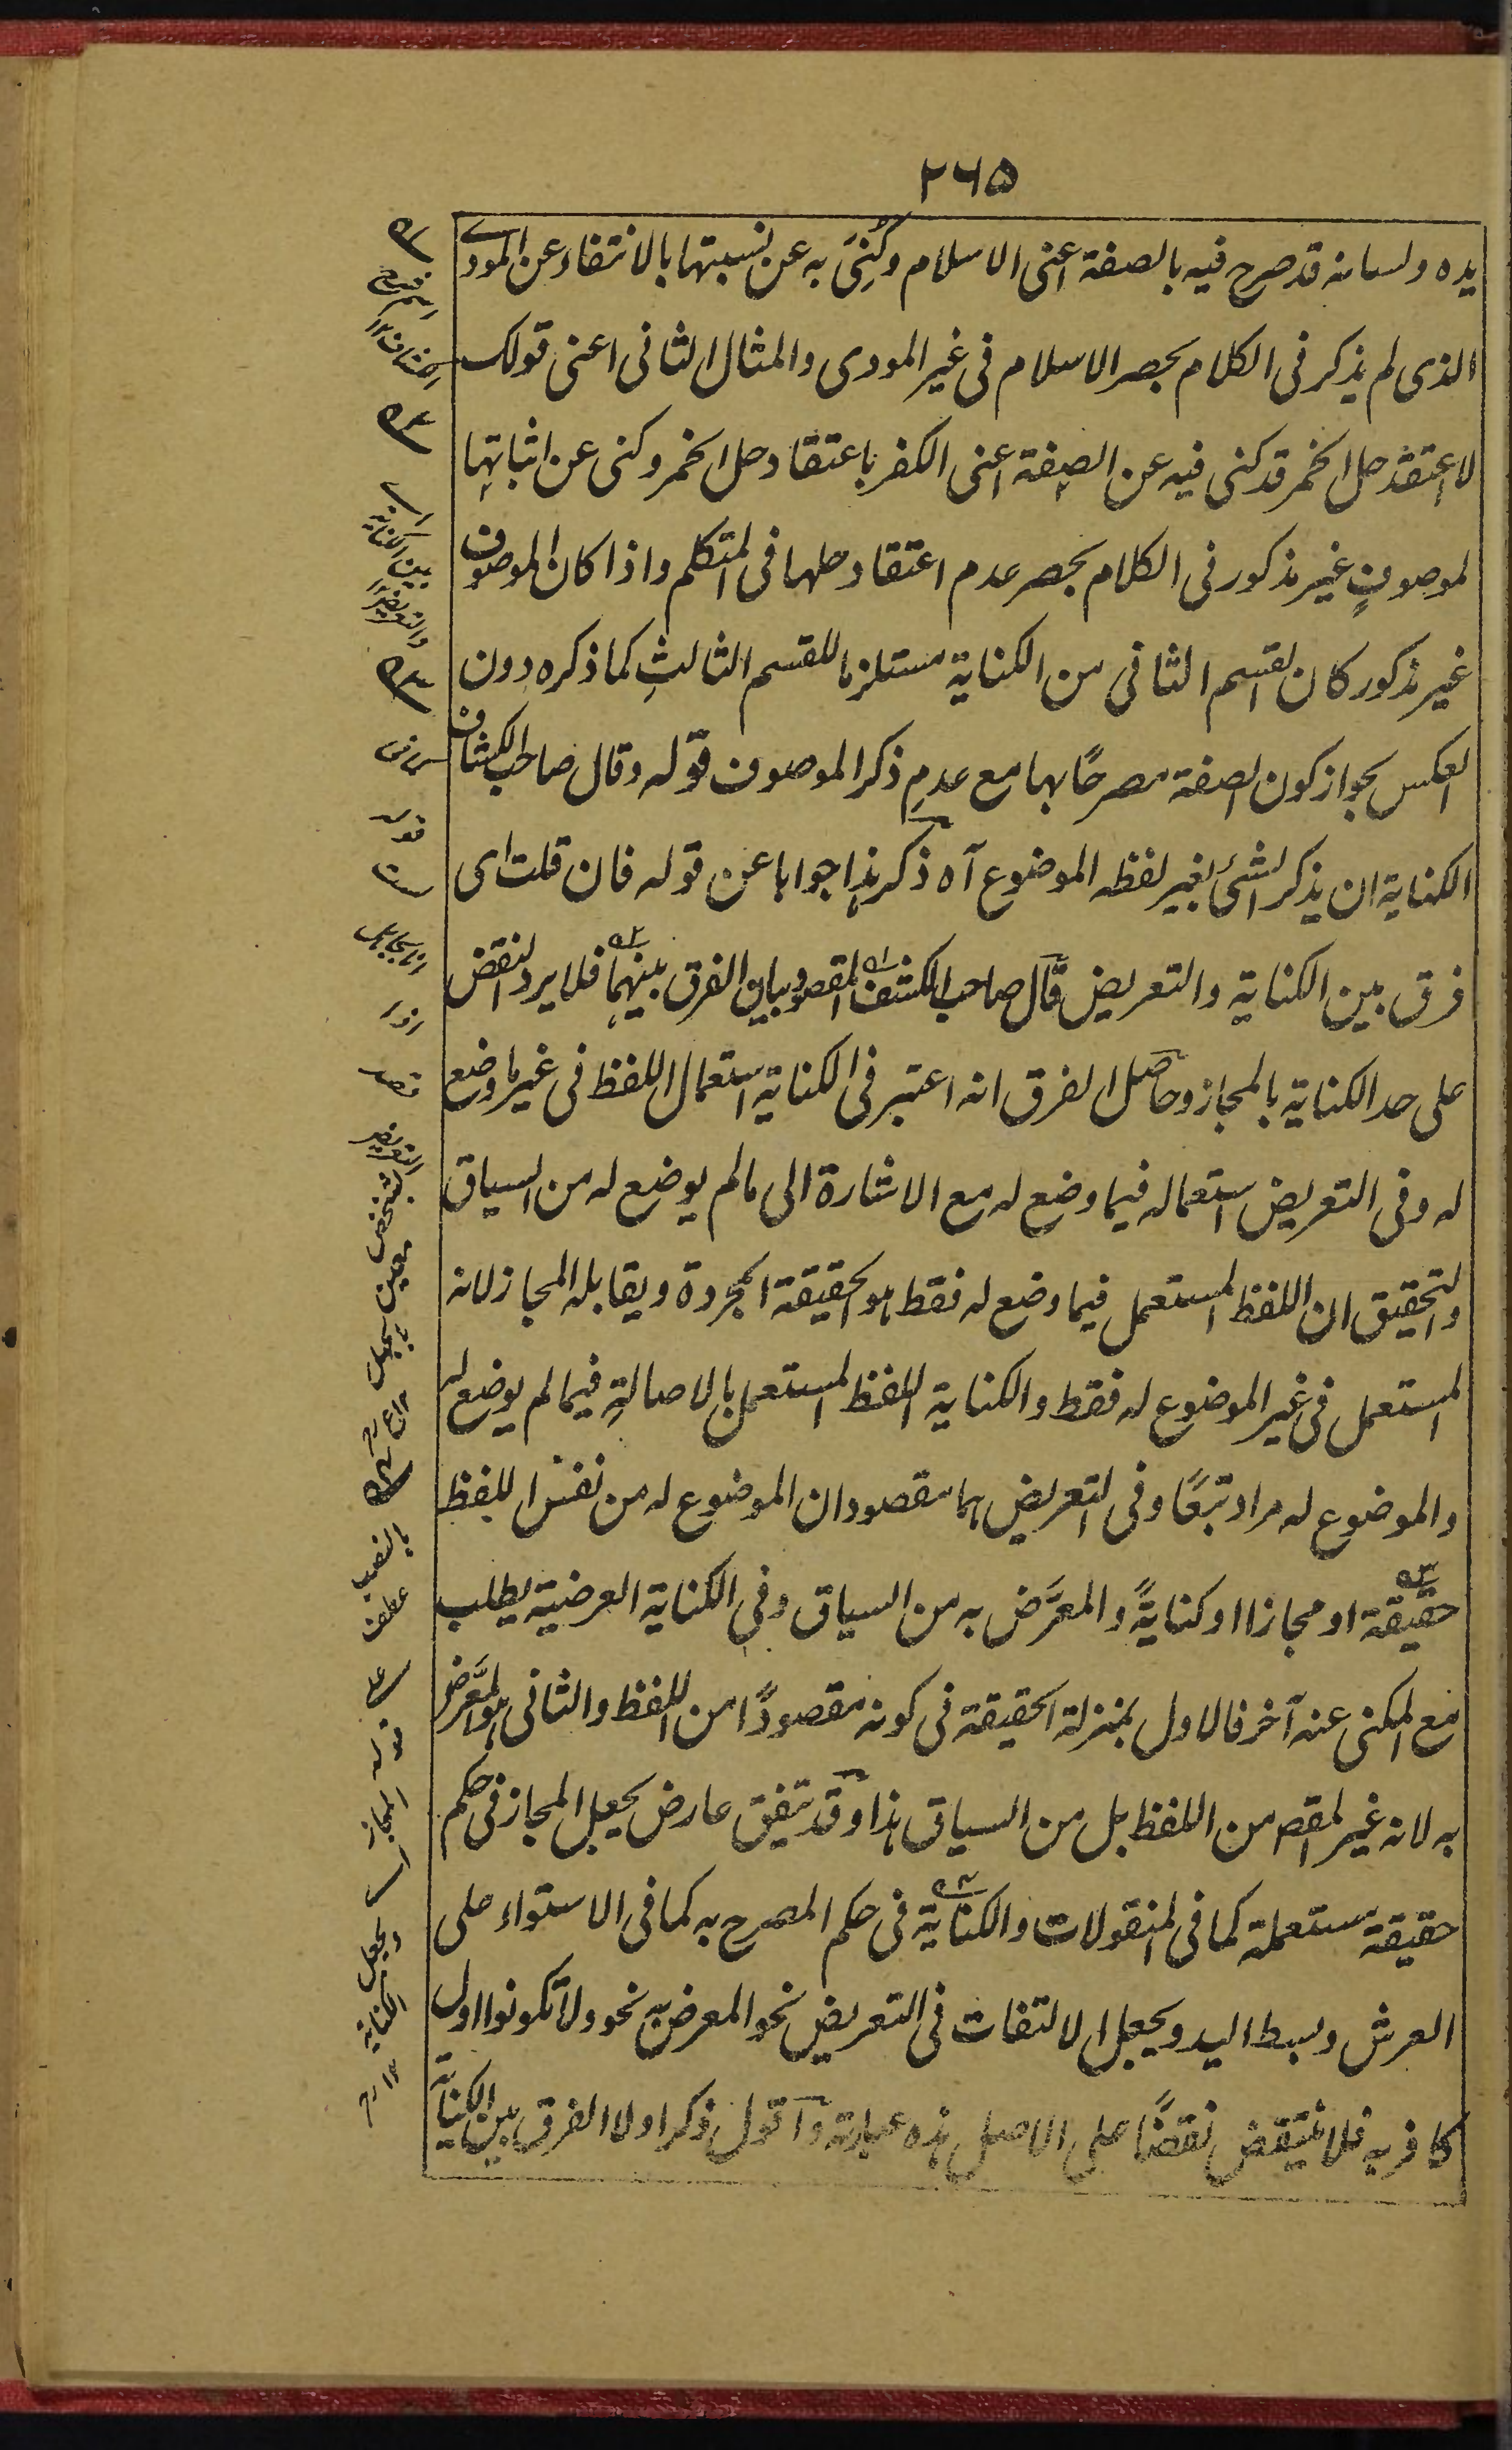 ٢٦٥
يده ولسانه قد صرح فيه بالصفة اعنى الاسلام وكُنِىَ به عن نسبتها بالانتفاء عن المودے
الذى لم يذكر فى الكلام بحصر الاسلام فى غير المودى والمثال الثانى اعنى قولك
لا اعتقد حل الخمر قد كنى فيه عن الصفة اعنى الكفر باعتقاد حل الخمر وكنى عن اثباتها
لموصوفٍ غير مذكور فى الكلام بحصر عدم اعتقاد حلها فى المتكلم واذا كان الموصوف
غير مذكور كان القسم الثانى من الكناية مستلزما للقسم الثالثِ كما ذكره دون
العكس بجواز كون الصفة مصرحًا بها مع عدمِ ذكر الموصوف قوله وقال صاحب الكشاف
الكناية ان يذكر الشئ بغير لفظه الموضوع آه ذكر هذا جوابا عن قوله فان قلت اى
فرق بين الكناية والتعريض قال صاحب الكشف المقصود بيان الفرق بينهما فلا يرد النقض
على حد الكناية بالمجاز وحاصل الفرق انه اعتبر فى الكناية استعمال اللفظ فى غير ما وضع
له وفى التعريض استعماله فيما وضع له مع الاشارة الى ما لم يوضع له من السياق
والتحقيق ان اللفظ المستعمل فيما وضع له فقط هو الحقيقة المجردة ويقابله المجاز لانه
المستعمل فى غير الموضوع له فقط والكناية اللفظ المستعمل بالاصالةِ فيما لم يوضع له
والموضوع له مراد تبعًا وفى التعريض هما مقصودان الموضوع له من نفس اللفظ
حقيقة او مجازا او كنايةً والمعرَّض به من السياق وفى الكناية العرضية يطلب
مع المكنى عنه آخر فالاول بمنزلة الحقيقة فى كونه مقصودًا من اللفظ والثانى هو المعرَّض
به لانه غير المقصود من اللفظ بل من السياق هذا وقد يتفق عارض يجعل المجاز فى حكم
حقيقة مستعملة كما فى المنقولات والكناية فى حكم المصرح به كما فى الاستواء على
العرش وبسط اليد ويجعل الالتفات فى التعريض نحو المعرض به نحو ولا تكونوا اول
كافر به فلا ينتقض نقضًا على الاصل هذه عبارته واقول ذكر اولا الفرق بين الكناية
اى
بين الكناية
والتعريض
التعريض
لشخص
معين
بالنصب
عطف
على
قوله
المجاز
اى
ويجعل
الكناية